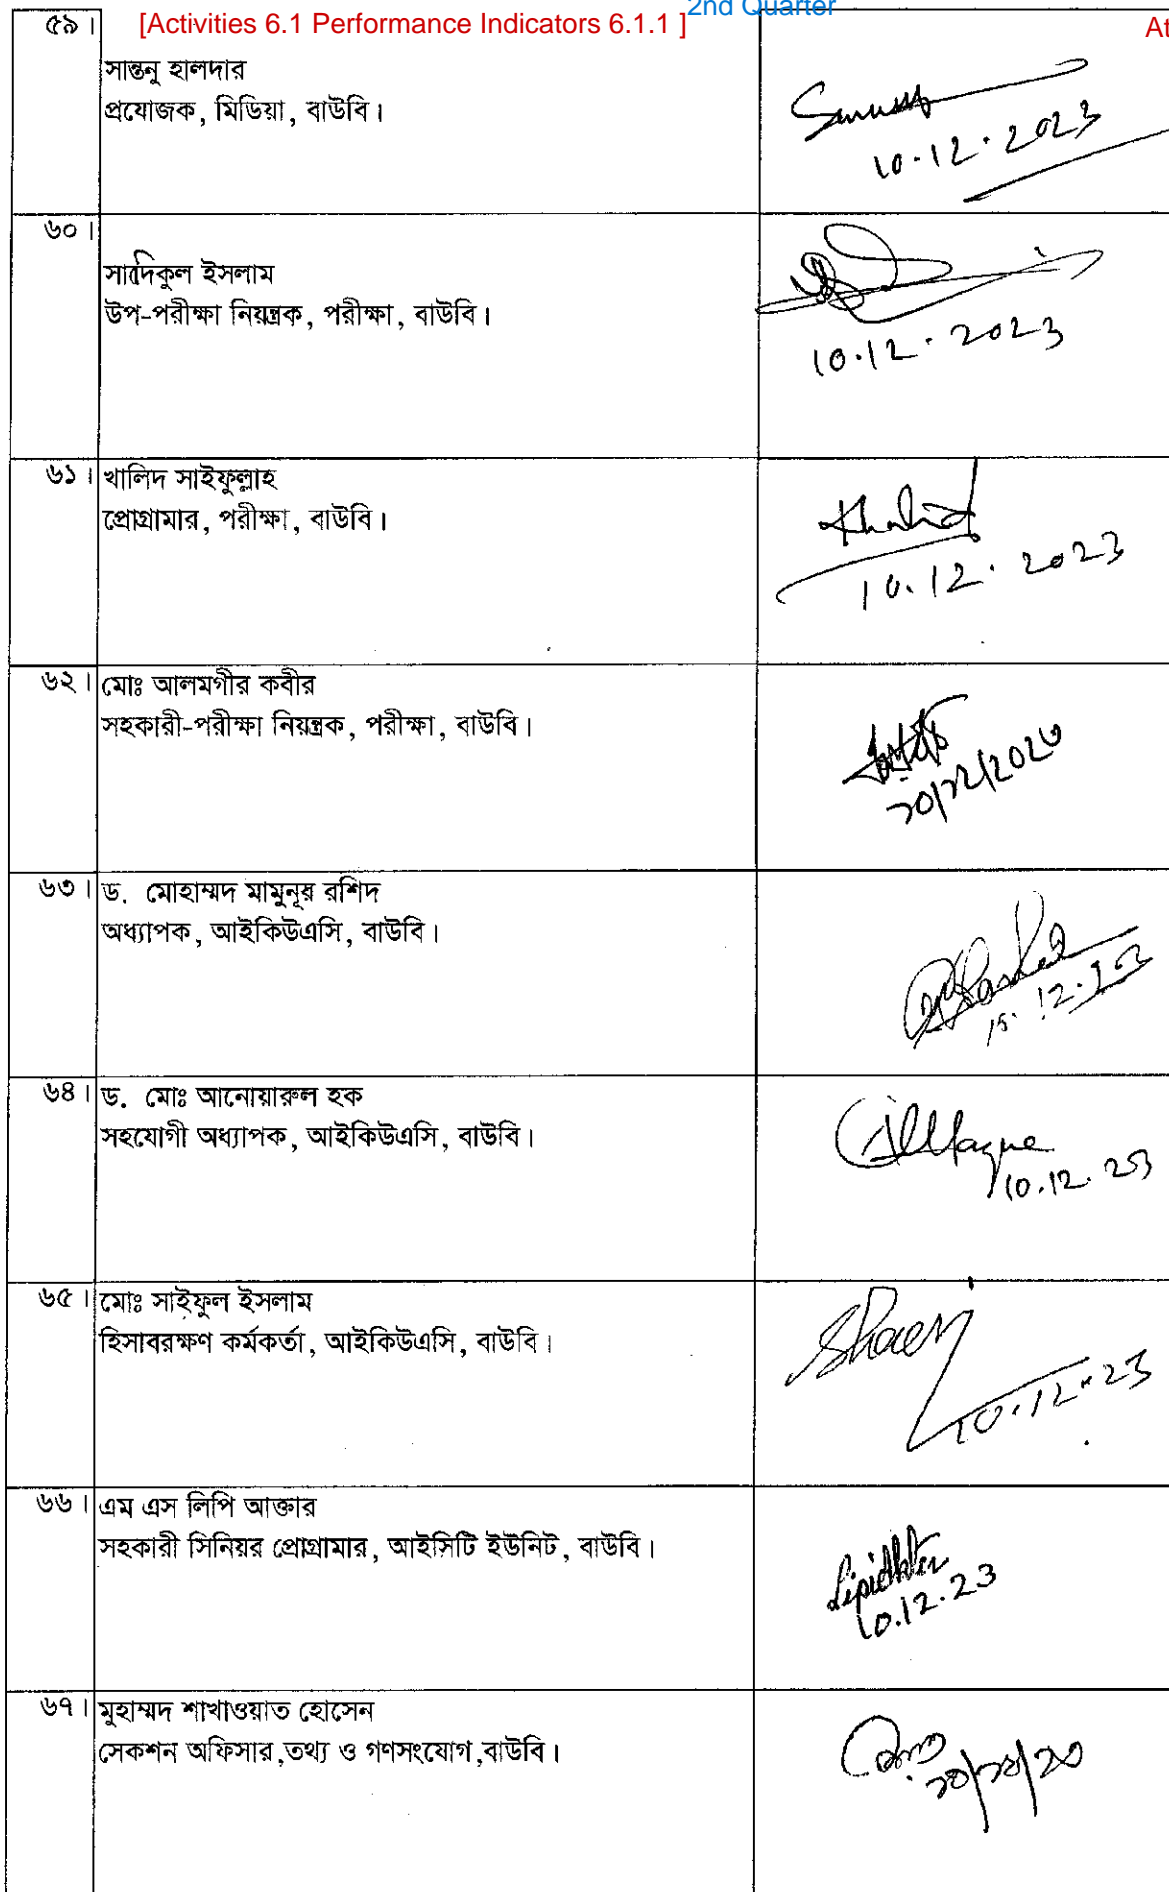 2nd Quarter
[Activities 6.1 Performance Indicators 6.1.1 ]
At
৫৯।
সান্তনু হালদার
প্রযোজক, মিডিয়া, বাউবি।
10.12.2023
৬০।
সাদিকুল ইসলাম
উপ-পরীক্ষা নিয়ন্ত্রক, পরীক্ষা, বাউবি।
10.12.2023
৬১। খালিদ সাইফুল্লাহ
প্রোগ্রামার, পরীক্ষা, বাউবি।
Khalid
10.12.2023
৬২। মোঃ আলমগীর কবীর
সহকারী-পরীক্ষা নিয়ন্ত্রক, পরীক্ষা, বাউবি।
৬৩। ড. মোহাম্মদ মামুনূর রশিদ
অধ্যাপক, আইকিউএসি, বাউবি।
৬৪। ড. মোঃ আনোয়ারুল হক
সহযোগী অধ্যাপক, আইকিউএসি, বাউবি।
10.12.23
৬৫। মোঃ সাইফুল ইসলাম
হিসাবরক্ষণ কর্মকর্তা, আইকিউএসি, বাউবি।
10.12.23
৬৬। এম এস লিপি আক্তার
সহকারী সিনিয়র প্রোগ্রামার, আইসিটি ইউনিট, বাউবি।
10.12.23
৬৭। মুহাম্মদ শাখাওয়াত হোসেন
সেকশন অফিসার,তথ্য ও গণসংযোগ,বাউবি।